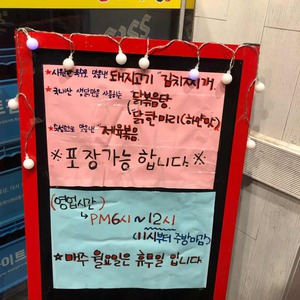 ★사골육수로 맛을낸 돼지고기 김치찌개.
★국내산 생닭만을 사용하는 닭볶음탕
닭한마리(하얀맛)
맛을낸 제육볶음.
※포장가능 합니다.※
(영업시간)
↳PM6시~12시
(11시부터 주방마감)
★매주 월요일은 휴무일 입니다